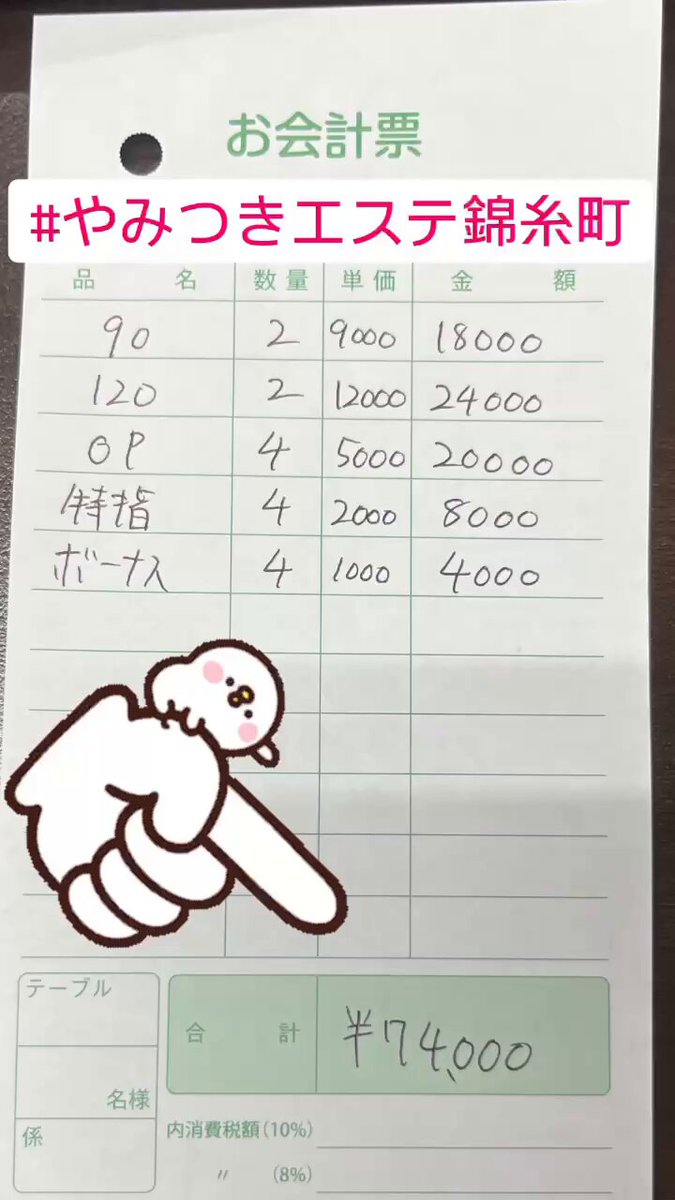 お会計票
#やみつきエステ錦糸町
品名 数量 単価 金額
90 2 9000 18000
120 2 12000 24000
OP 4 5000 20000
特指 4 2000 8000
ボーナス 4 1000 4000
テーブル
名様
係
合計 ¥74,000
内消費税額(10%)
〃 (8%)